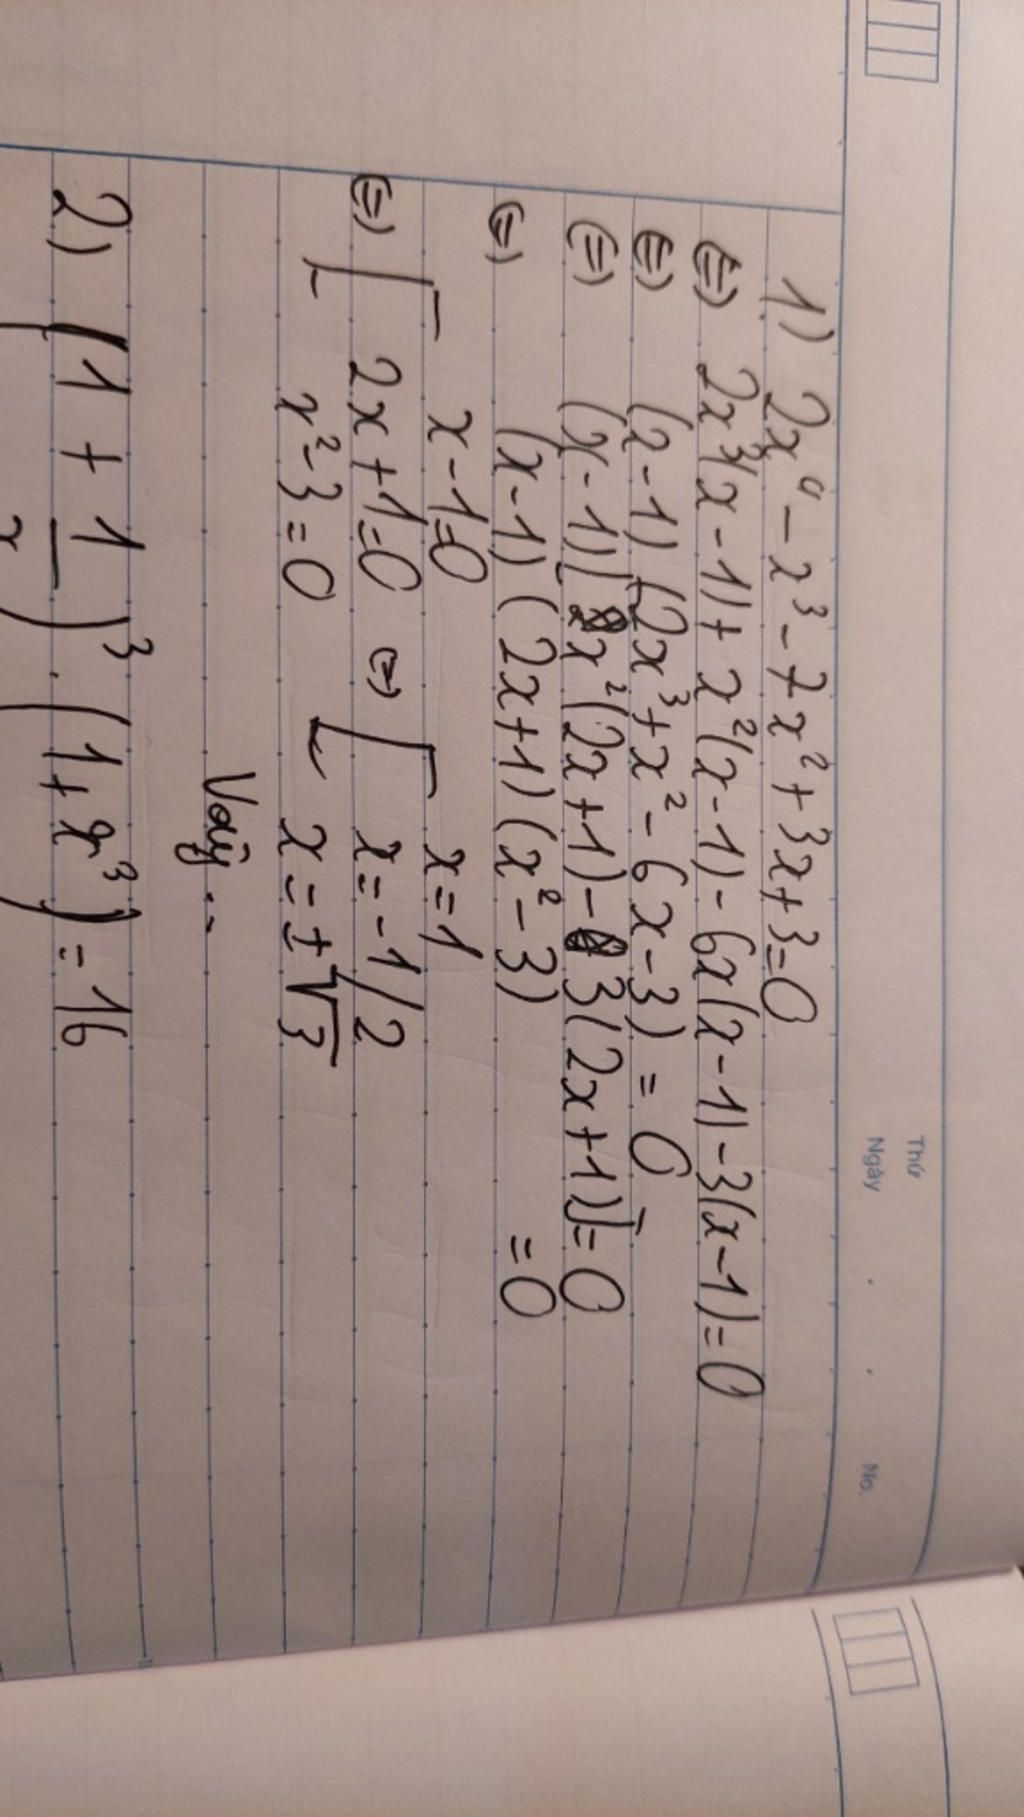 Thứ
Ngày . . No.
1) 2x⁴ - x³ - 7x² + 3x + 3 = 0
(=) 2x³(x - 1) + x²(x - 1) - 6x(x - 1) - 3(x - 1) = 0
(=) (x - 1) (2x³ + x² - 6x - 3) = 0
(=) (x - 1) [x²(2x + 1) - 3(2x + 1)] = 0
(=) (x - 1) (2x + 1) (x² - 3) = 0
x - 1 = 0 x = 1
(=) [ 2x + 1 = 0 (=) [ x = -1/2
x² - 3 = 0 x = ±√3
Vậy...
2) (1 + 1/x)³ . (1 + x³) = 16